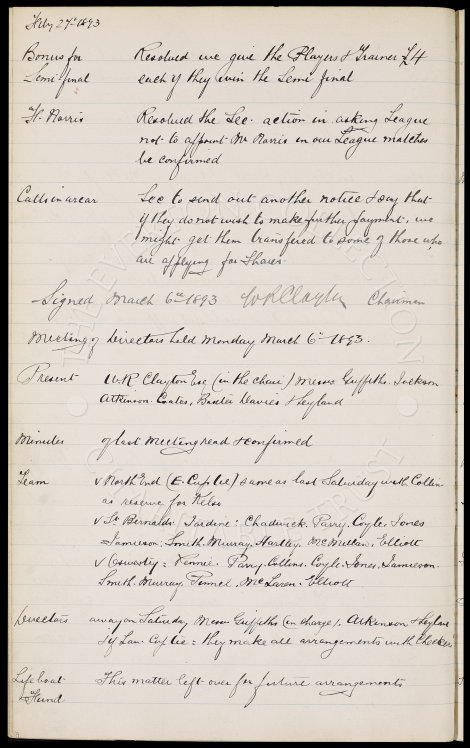 Feby 27th 1893
Bonus for Resolved we give the Players & Trainer £4
Semi final each if they win the Semi final
H. Norris Resolved the Sec. action in asking League
not to appoint Mr Norris in our League matches
be confirmed
Calls in arear Sec to send out another notice & say that
if they do not wish to make further payment, we
might get them transfered to some of those who
are applying for Shares.
Signed March 6th 1893 W R Clayton Chairman
Meeting of Directors held Monday March 6th 1893.
Present W.R. Clayton Esq (in the chair) Messrs Griffiths. Jackson
Atkinson. Coates, Baxter Davies & Leyland
Minutes of last Meeting read & confirmed
Team v North End (E. Cup tie) same as last Saturday with Collins
as reserve for Kelso
v St Bernards: Jardine: Chadwick. Parry. Coyle. Jones
Jamieson. Smith. Murray. Hartley. McMillan. Elliott
v Oswestry: Rennie. Parry. Collins. Coyle. Jones. Jamieson.
Smith. Murray. McLaren. Elliott
Directors away on Saturday Messrs Griffiths (in charge). Atkinson & Leyland
If Lan. Cup tie = they make all arrangements with Checkers
Life boat This matter left over for future arrangements
Fund